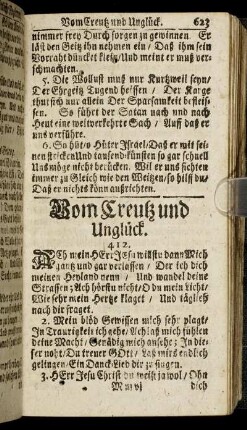 Vom Creutz und Unglück. 623
nimmer frey Durch sorgen zu gewinnen. Er
läst den Geitz ihn nehmen ein/ Daß ihm sein
Vorraht düncket klein/ Und meint er muß ver-
schmachten.
5. Die Wollust muß nur Kurtzweil seyn/
Der Ehrgeitz Tugend heissen / Der Karge
thut sich nur allein Der Sparsamkeit befleis-
sen. So führt der Satan nach und nach
Heut eine weltverkehrte Sach/ Auff daß er
uns verführe.
6. So hüte o Hüter Israel/ Daß er mit sei-
nen stricken Und tausend-künsten so gar schnell
Uns möge nicht berücken. Wil er uns sichten
immer zu Gleich wie den Weitzen/ so hilff du/
Daß er nichts könn außrichten.
Vom Creutz und
Unglück.
412.
ACh mein HErr Jesu wilstu dann Mich
gantz und gar verlassen/ Der ich dich
meinen Heyland nenn/ Und wandel deine
Strassen; Ach hörstu nicht/ O du mein Licht/
Wie sehr mein Hertze klaget/ Und täglich
nach dir fraget.
2. Mein blöd Gewissen mich sehr plagt/
In Traurigkeit ich gehe/ Ach laß mich fühlen
deine Macht/ Genädig mich ansehe; In die-
ser noht/ Du treuer GOtt/ Laß mirs endlich
gelingen/ Ein Danck-Lied dir zu singen.
3. HErr Jesu Christ du weist ja wol/ Ohn
dich